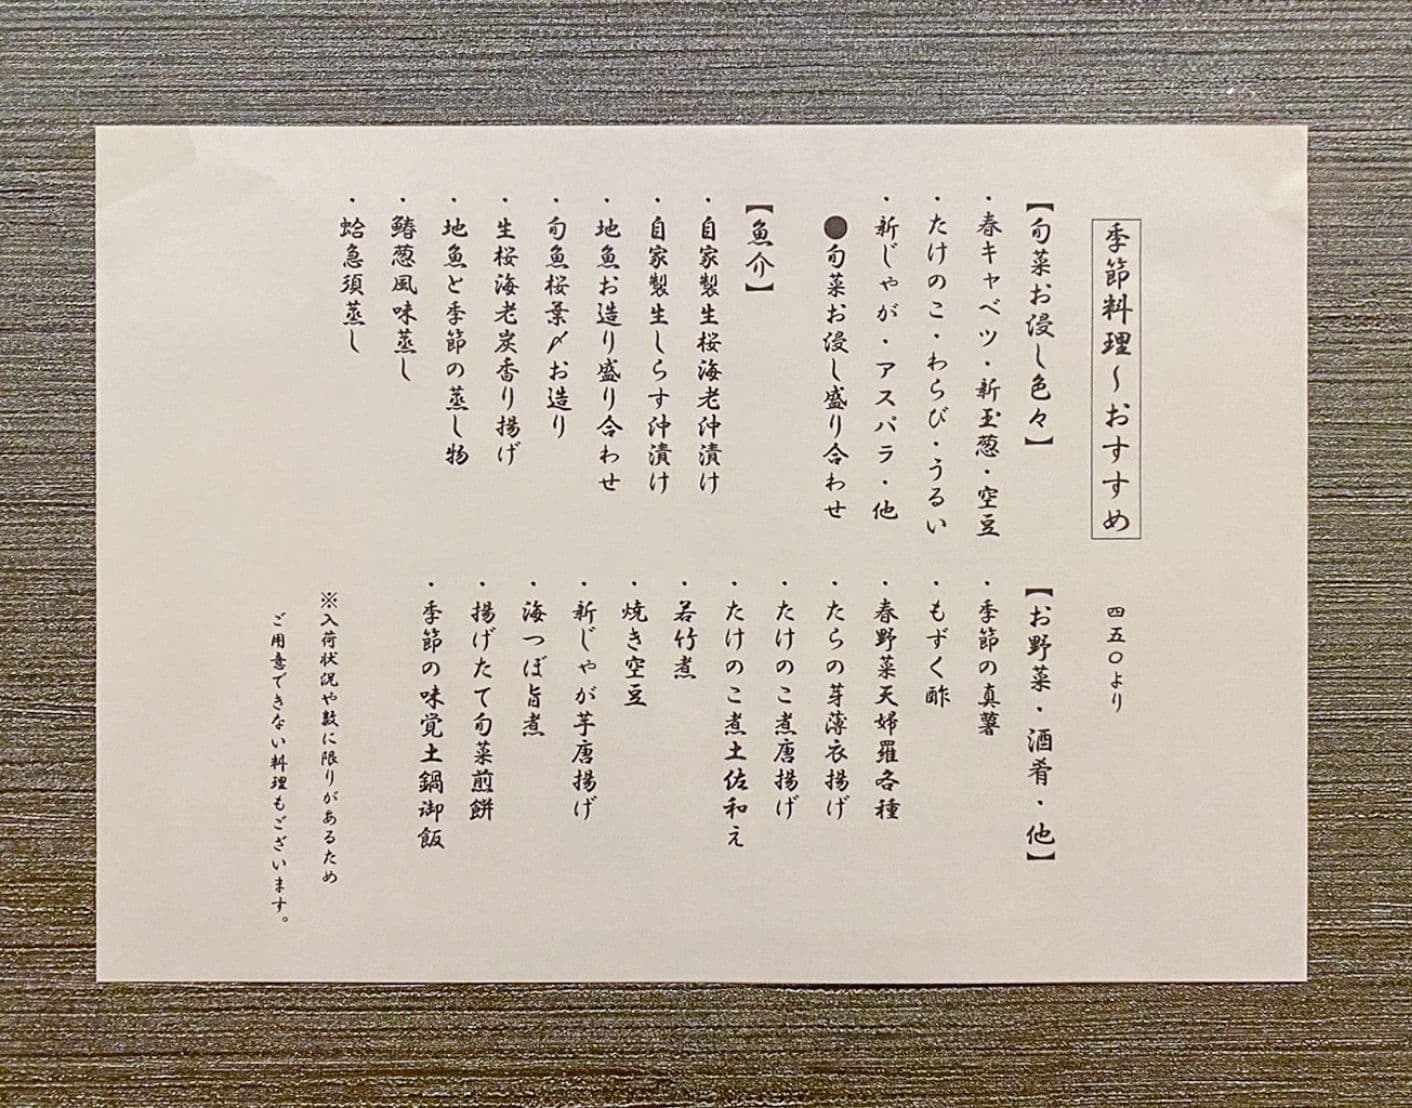 季節料理～おすすめ
四五〇より
【旬菜お浸し色々】
・春キャベツ・新玉葱・空豆
・たけのこ・わらび・うるい
・新じゃが・アスパラ・他
●旬菜お浸し盛り合わせ
【魚介】
・自家製生桜海老沖漬け
・自家製生しらす沖漬け
・地魚お造り盛り合わせ
・旬魚桜葉〆お造り
・生桜海老炭香り揚げ
・地魚と季節の蒸し物
・鰆葱風味蒸し
・蛤急須蒸し
【お野菜・酒肴・他】
・季節の真薯
・もずく酢
・春野菜天婦羅各種
・たらの芽薄衣揚げ
・たけのこ煮唐揚げ
・たけのこ煮土佐和え
・若竹煮
・焼き空豆
・新じゃが芋唐揚げ
・海つぼ旨煮
・揚げたて旬菜煎餅
・季節の味覚土鍋御飯
※入荷状況や数に限りがあるため
ご用意できない料理もございます。